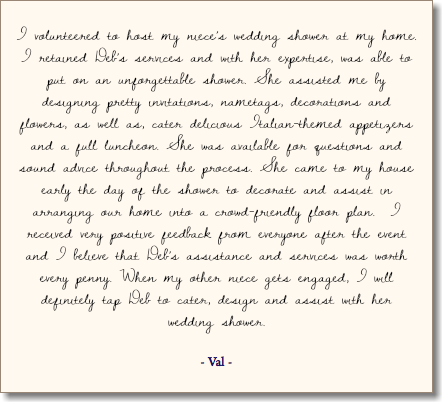 I volunteered to host my niece's wedding shower at my home.
I retained Deb's services and with her expertise, was able to
put on an unforgettable shower. She assisted me by
designing pretty invitations, nametags, decorations and
flowers, as well as, cater delicious Italian-themed appetizers
and a full luncheon. She was available for questions and
sound advice throughout the process. She came to my house
early the day of the shower to decorate and assist in
arranging our home into a crowd-friendly floor plan. I
received very positive feedback from everyone after the event
and I believe that Deb's assistance and services was worth
every penny. When my other niece gets engaged, I will
definitely tap Deb to cater, design and assist with her
wedding shower.
- Val -